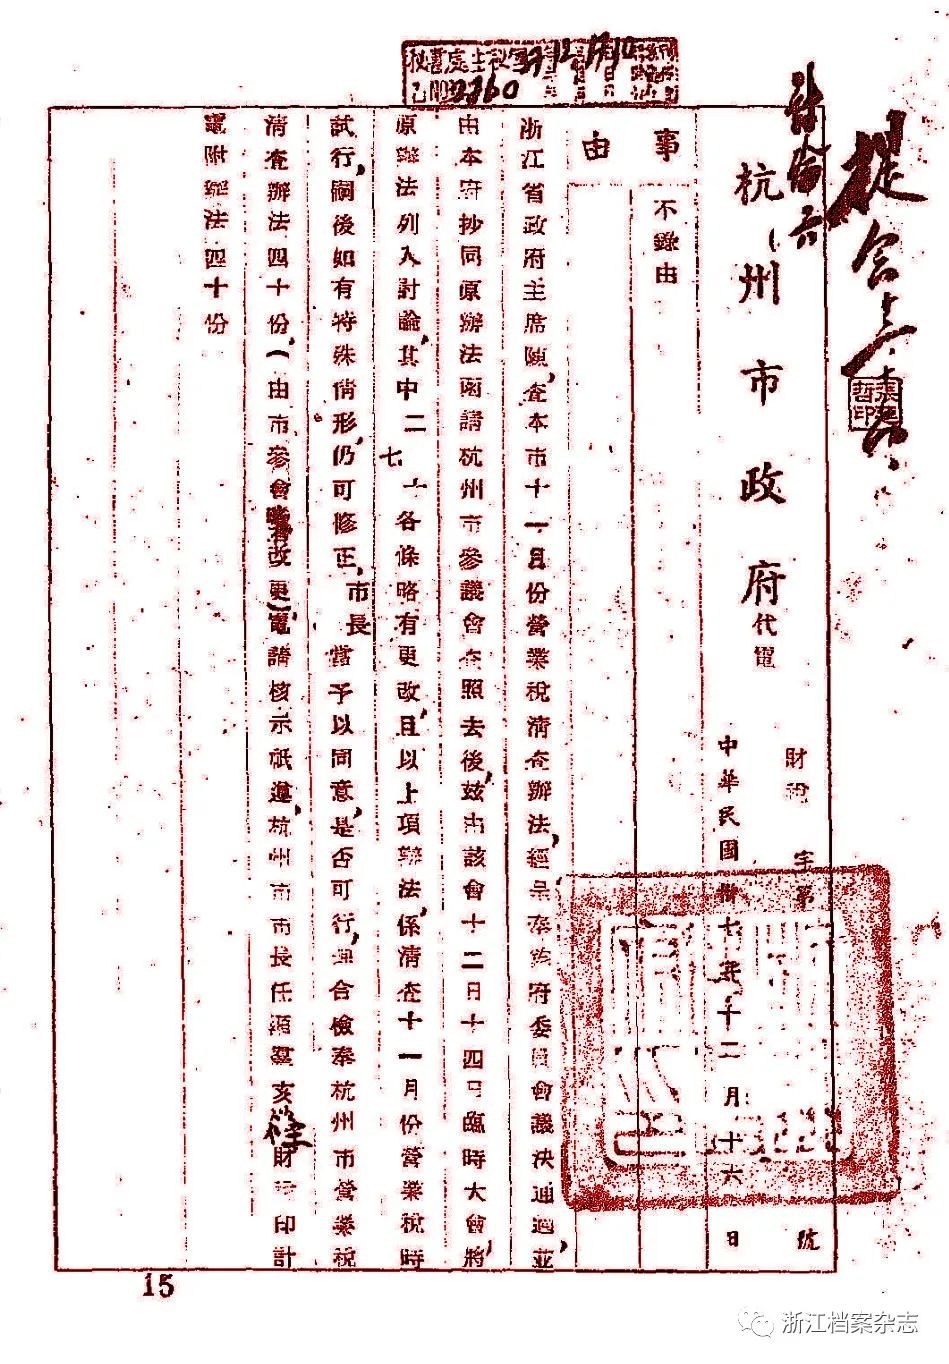 37 12 17 10
2760
提会
杭州市政府代電
財 字第 號
中華民國卅七年十二月十六日
事由
不錄由
浙江省政府主席陳、查本市十一月份營業稅清查辦法、經呈奉 府委員會議決通過、並
由本府抄同原辦法函請杭州市參議會查照去後、茲由該會十二月十四日臨時大會、將
原辦法列入討論、其中二七十各條略有更改、且以上項辦法、係清查十一月份營業稅時
試行、嗣後如有特殊情形、仍可修正、市長當予以同意、是否可行、理合檢奉杭州市營業稅
清查辦法四十份、(由市參會 改更)電請核示祇遵、杭州市市長任顯羣亥 財 印計
電附辦法四十份
15
浙江档案杂志